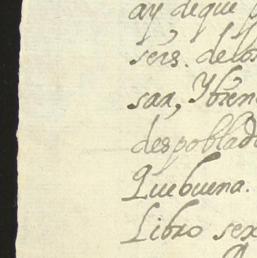 ay deque
seis. delos
sar, Ybren
despoblad
Quebuena.
Libro sex